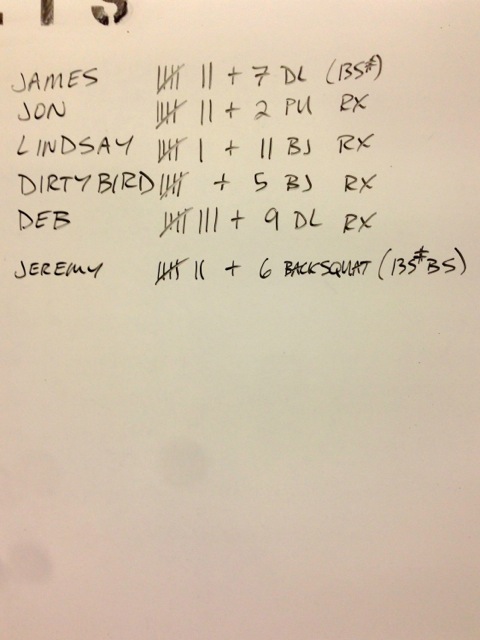 JAMES 𝍸 II + 7 DL (135#)
JON 𝍸 II + 2 PU RX
LINDSAY 𝍸 I + 11 BJ RX
DIRTYBIRD 𝍸 + 5 BJ RX
DEB 𝍸 III + 9 DL RX
JEREMY 𝍸 II + 6 BACKSQUAT (135# BS)